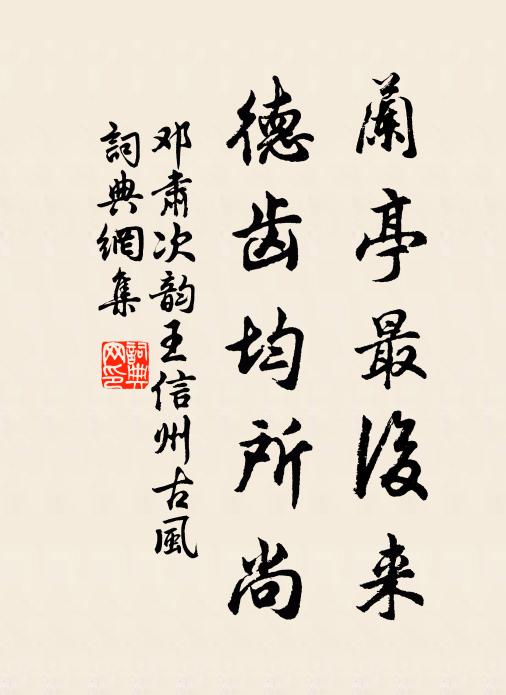 蘭亭最後来
德齿均所尚
邓肅次韵王信州古風
詞典網集
詞典網印